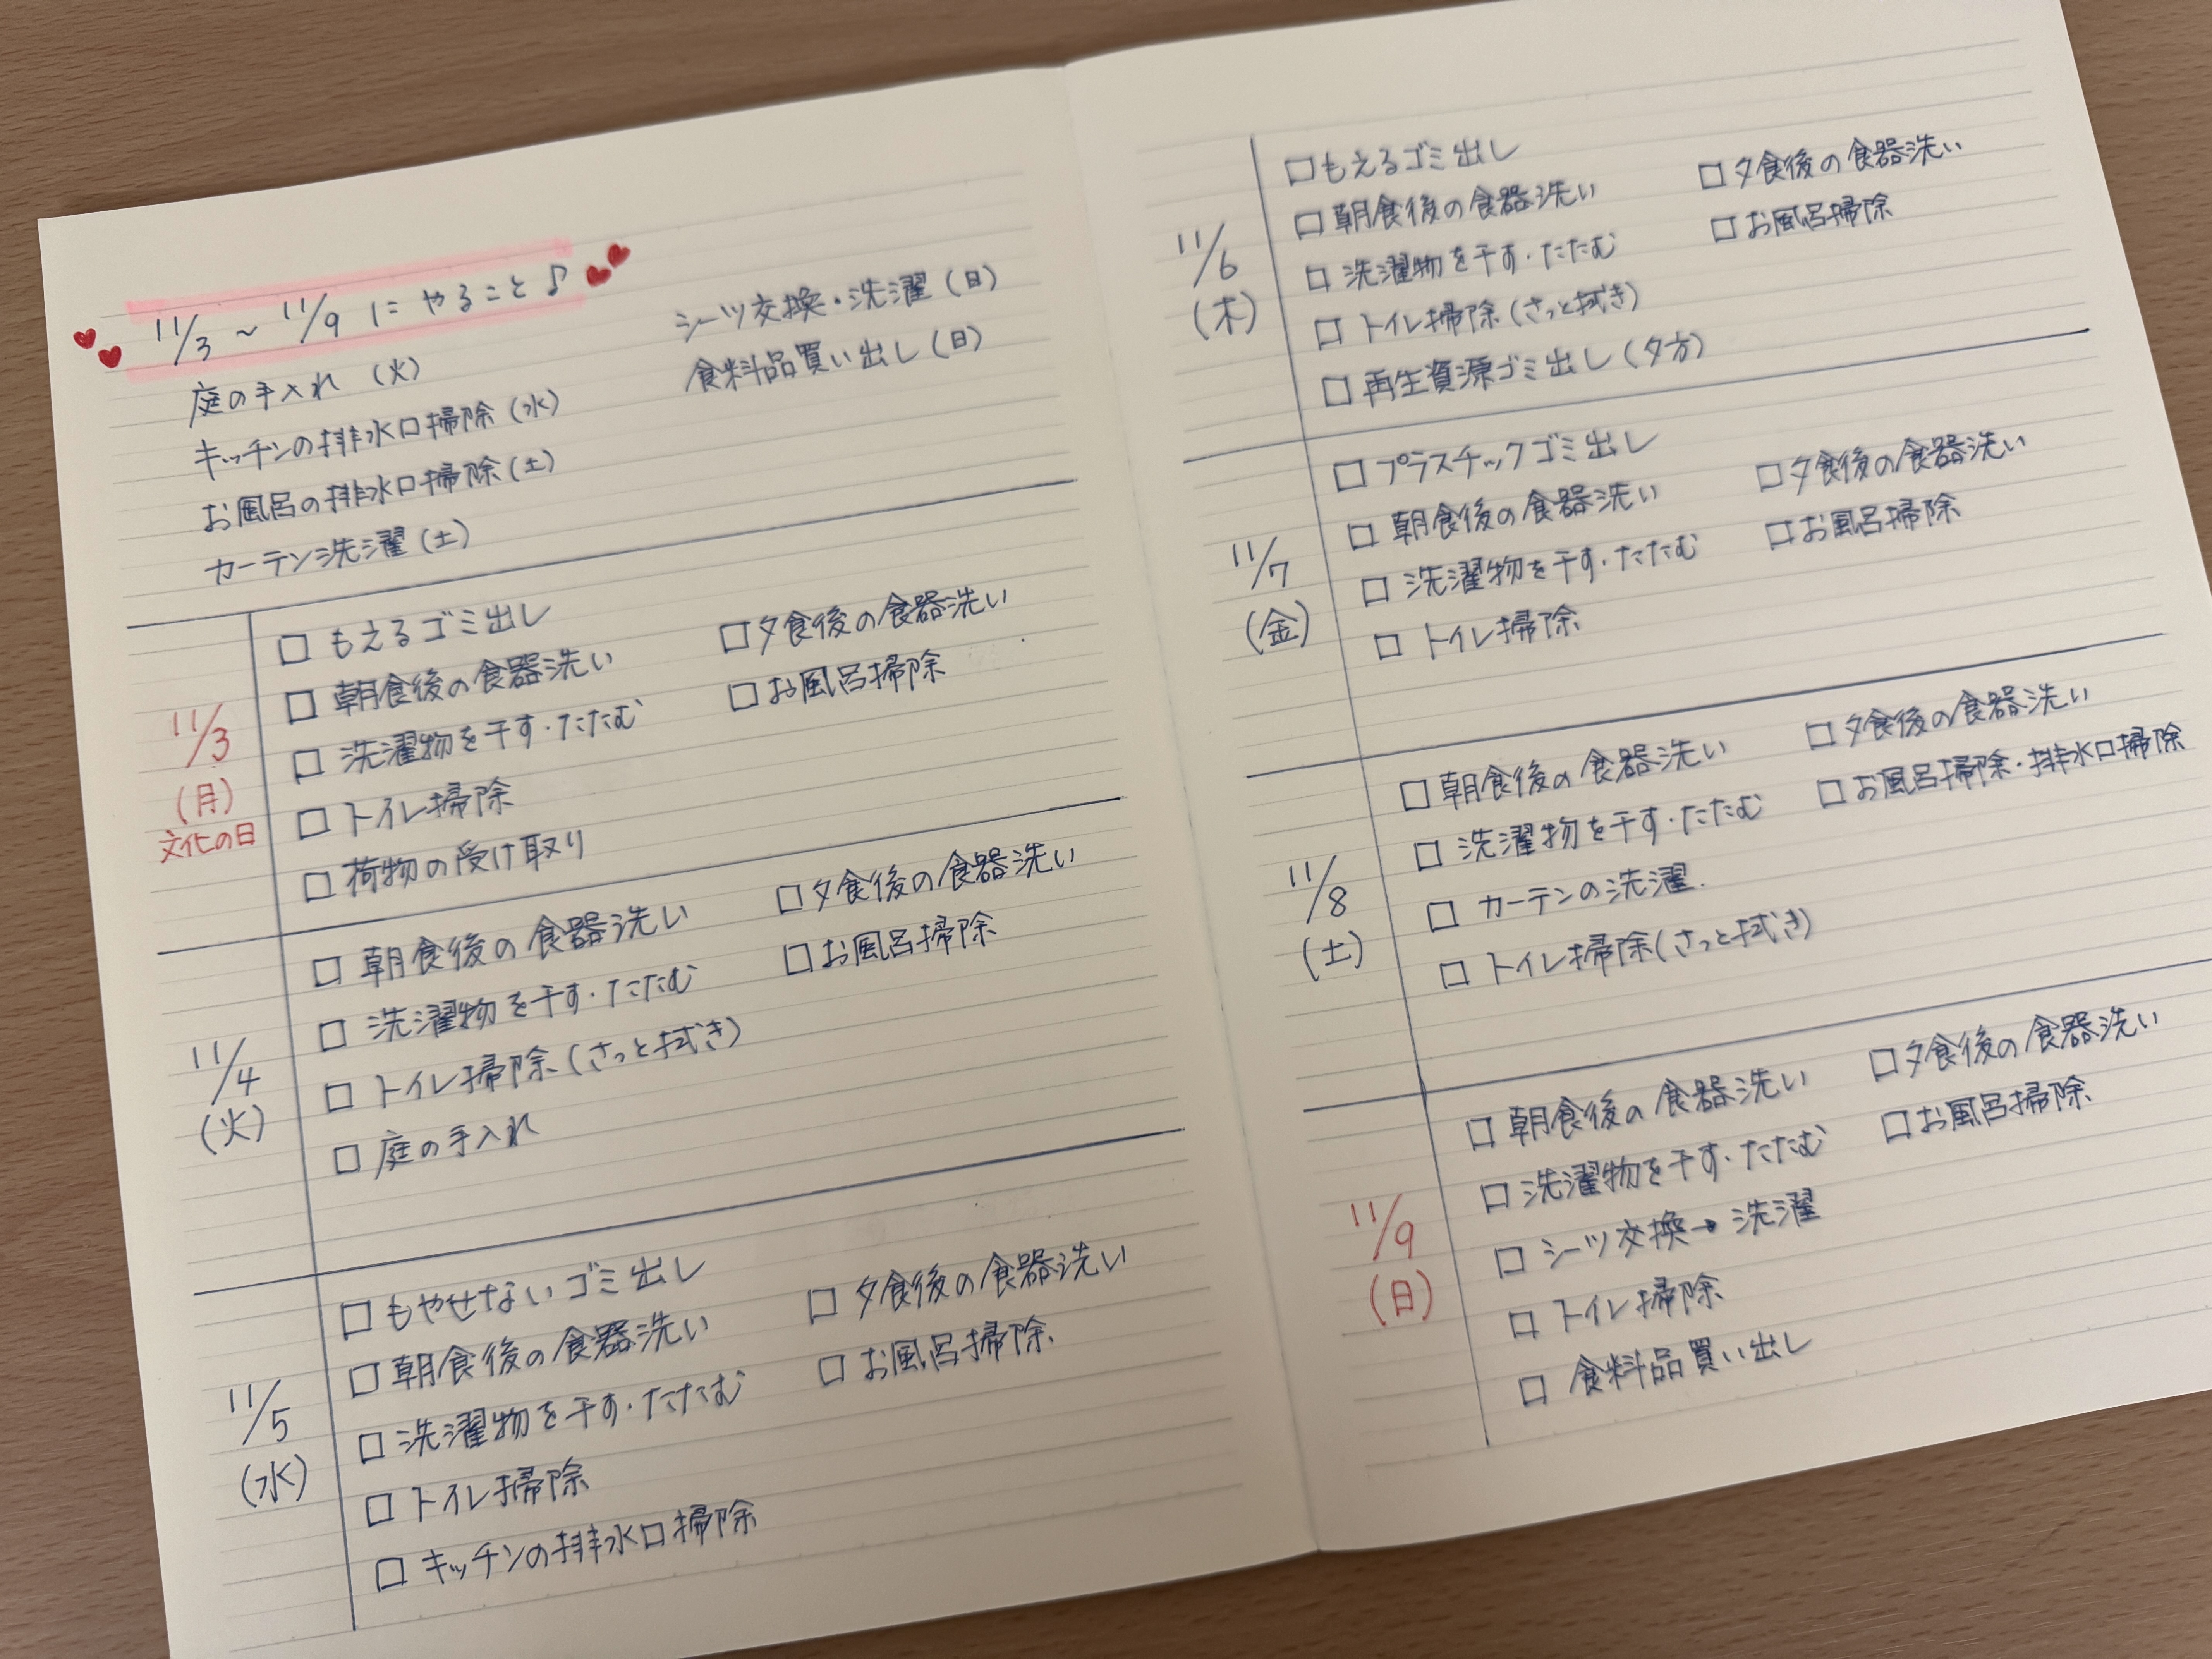 11/3 ~ 11/9 にやること♪
庭の手入れ (火)
キッチンの排水口掃除 (水)
お風呂の排水口掃除 (土)
カーテン洗濯 (土)
シーツ交換・洗濯 (日)
食料品買い出し (日)
11/3
(月)
文化の日
□ もえるゴミ出し
□ 朝食後の食器洗い
□ 洗濯物を干す・たたむ
□ トイレ掃除
□ 荷物の受け取り
□ 夕食後の食器洗い
□ お風呂掃除
11/4
(火)
□ 朝食後の食器洗い
□ 洗濯物を干す・たたむ
□ トイレ掃除 (さっと拭き)
□ 庭の手入れ
□ 夕食後の食器洗い
□ お風呂掃除
11/5
(水)
□ もやせないゴミ出し
□ 朝食後の食器洗い
□ 洗濯物を干す・たたむ
□ トイレ掃除
□ キッチンの排水口掃除
□ 夕食後の食器洗い
□ お風呂掃除
11/6
(木)
□ もえるゴミ出し
□ 朝食後の食器洗い
□ 洗濯物を干す・たたむ
□ トイレ掃除 (さっと拭き)
□ 再生資源ゴミ出し (夕方)
□ 夕食後の食器洗い
□ お風呂掃除
11/7
(金)
□ プラスチックゴミ出し
□ 朝食後の食器洗い
□ 洗濯物を干す・たたむ
□ トイレ掃除
□ 夕食後の食器洗い
□ お風呂掃除
11/8
(土)
□ 朝食後の食器洗い
□ 洗濯物を干す・たたむ
□ カーテンの洗濯
□ トイレ掃除 (さっと拭き)
□ 夕食後の食器洗い
□ お風呂掃除・排水口掃除
11/9
(日)
□ 朝食後の食器洗い
□ 洗濯物を干す・たたむ
□ シーツ交換→洗濯
□ トイレ掃除
□ 食料品買い出し
□ 夕食後の食器洗い
□ お風呂掃除